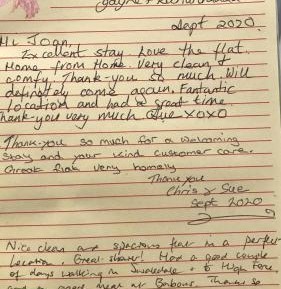 Sept 2020.
Hi Joan,
Excellent stay Love the flat.
Home from Home. Very clean &
comfy! Thank-you so much. Will
definately come again. Fantastic
Location and had a great time
Thank-you very much Sue xoxo
Thank-you so much for a welcoming
stay and your kind customer care.
Great flat very homely
Thank you
Chris & Sue
Sept 2020
Nice clean and spacious flat in a perfect
Location. Great shower! Had a good couple
of days walking in Swaledale + to High Force
and a good meal at Babouls. Thanks so